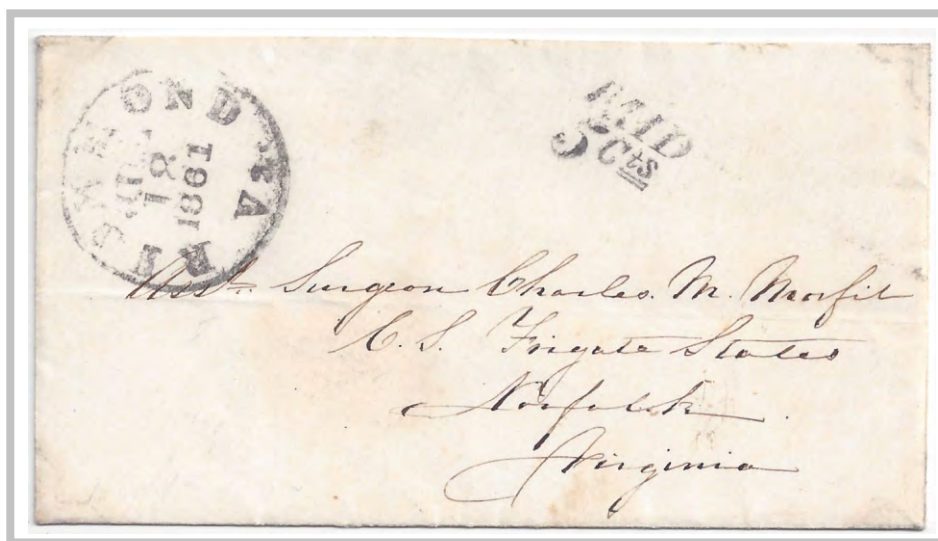 RICHMOND VA.
JUL
18
1861
PAID
5 Cts
Asst. Surgeon Charles M. Morfit
C. S. Frigate States
Norfolk
Virginia